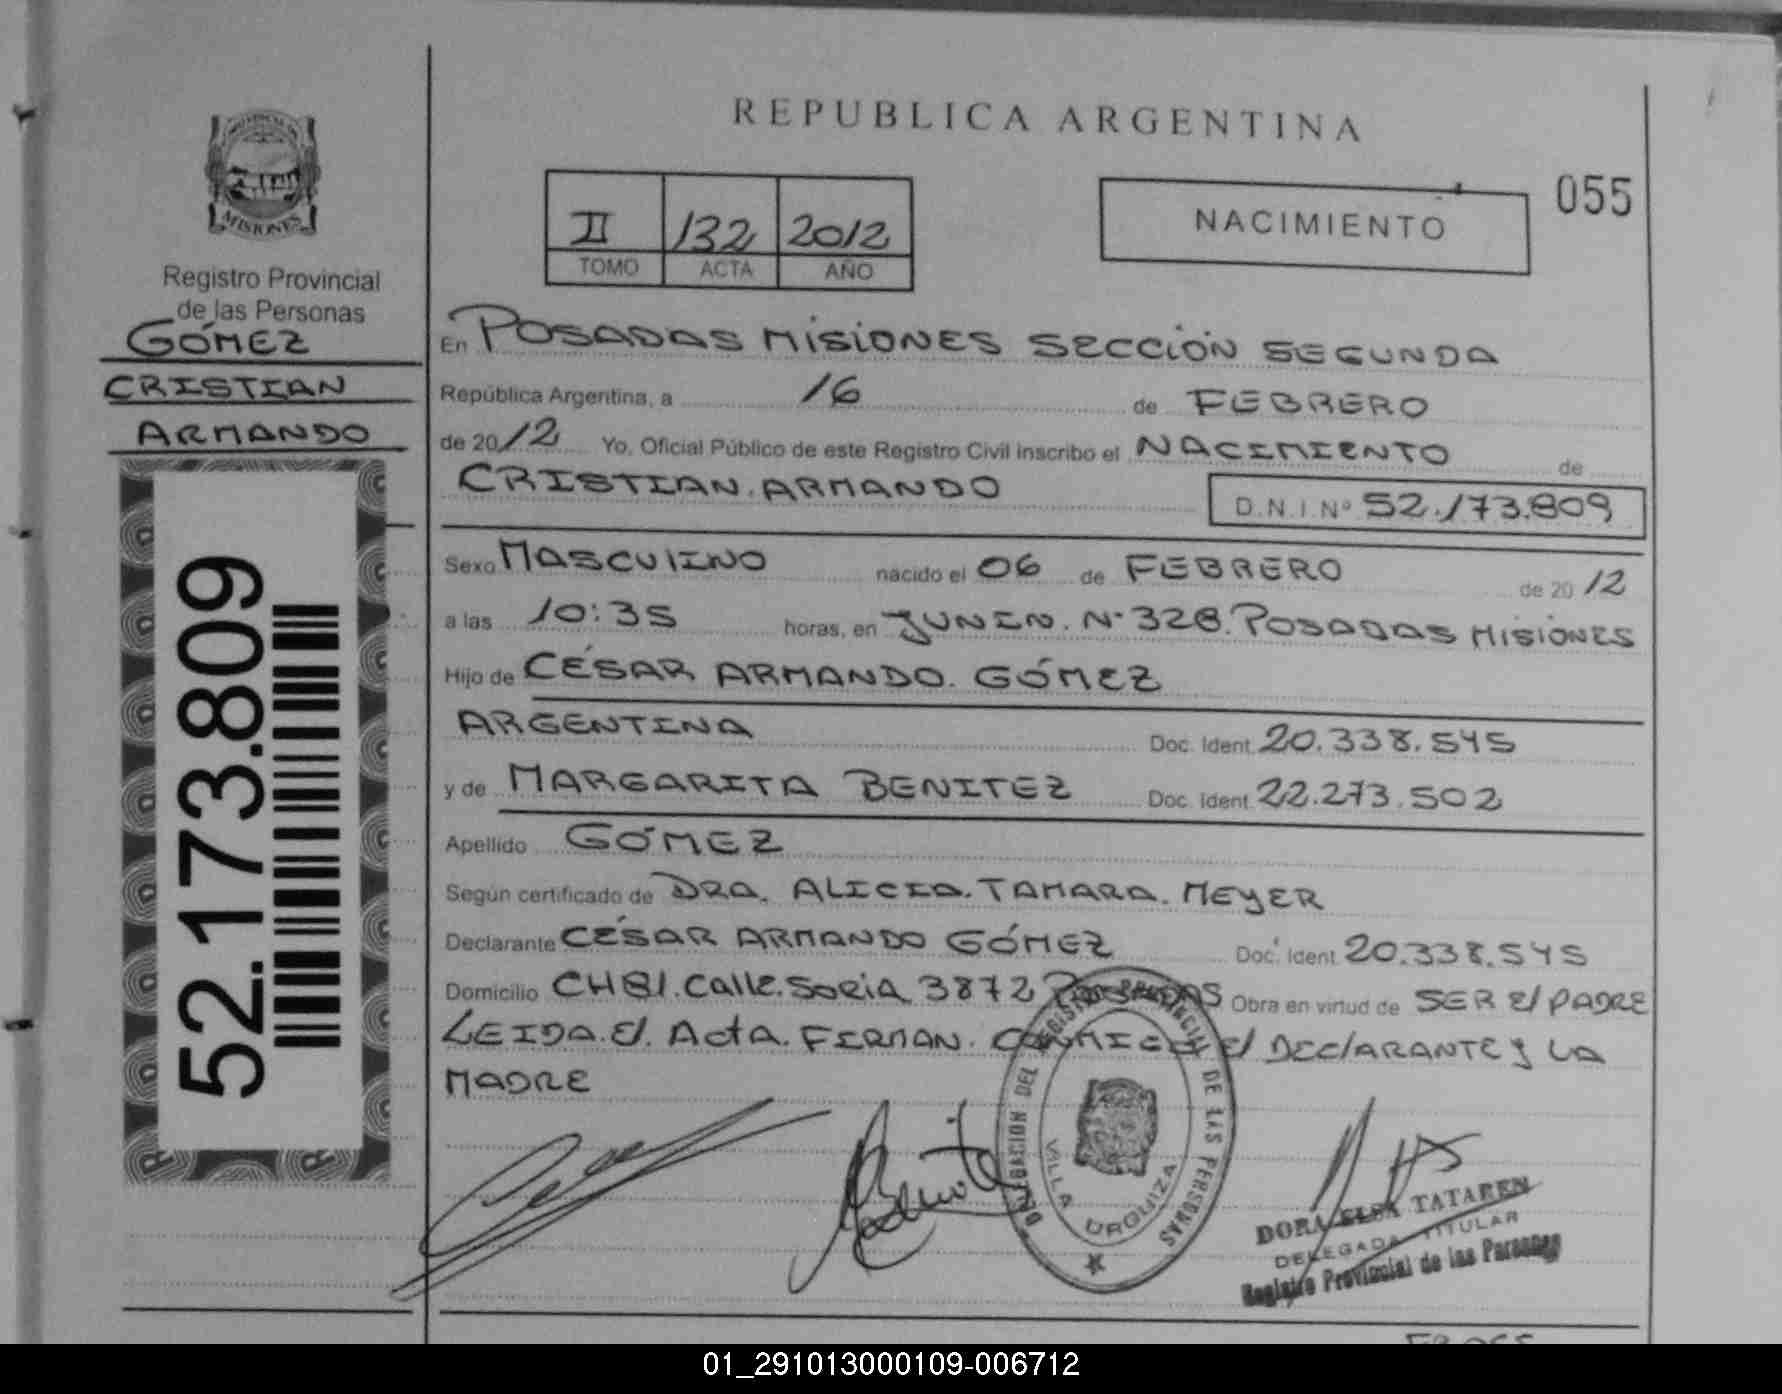 PROVINCIA DE
MISIONES
Registro Provincial
de las Personas
GÓMEZ
CRISTIAN
ARMANDO
52.173.809
REPUBLICA ARGENTINA
II 132 2012
TOMO ACTA AÑO
NACIMIENTO
055
En POSADAS MISIONES SECCIÓN SEGUNDA
República Argentina, a 16 de FEBRERO
de 2012 Yo, Oficial Público de este Registro Civil inscribo el NACIMIENTO de
CRISTIAN. ARMANDO D.N.I. Nº 52.173.809
Sexo MASCULINO nacido el 06 de FEBRERO de 2012
a las 10:35 horas, en JUNIN. Nº 328. POSADAS MISIONES
Hijo de CÉSAR ARMANDO. GÓMEZ
ARGENTINA Doc. Ident. 20.338.545
y de MARGARITA BENITEZ Doc. Ident. 22.273.502
Apellido GÓMEZ
Según certificado de DRA. ALICIA. TAMARA. MEYER
Declarante CÉSAR ARMANDO GÓMEZ Doc. Ident. 20.338.545
Domicilio CH81. Calle. SORIA 3872 POSADAS Obra en virtud de SER El PADRE
LEIDA. El. Acta. FIRMAN. CONMIGO El DEClARANTE y LA
MADRE
DELEGACION DEL REGISTRO PROVINCIAL DE LAS PERSONAS
VILLA URQUIZA
DORA ELSA TATAREN
DELEGADA TITULAR
Registro Provincial de las Personas
01_291013000109-006712